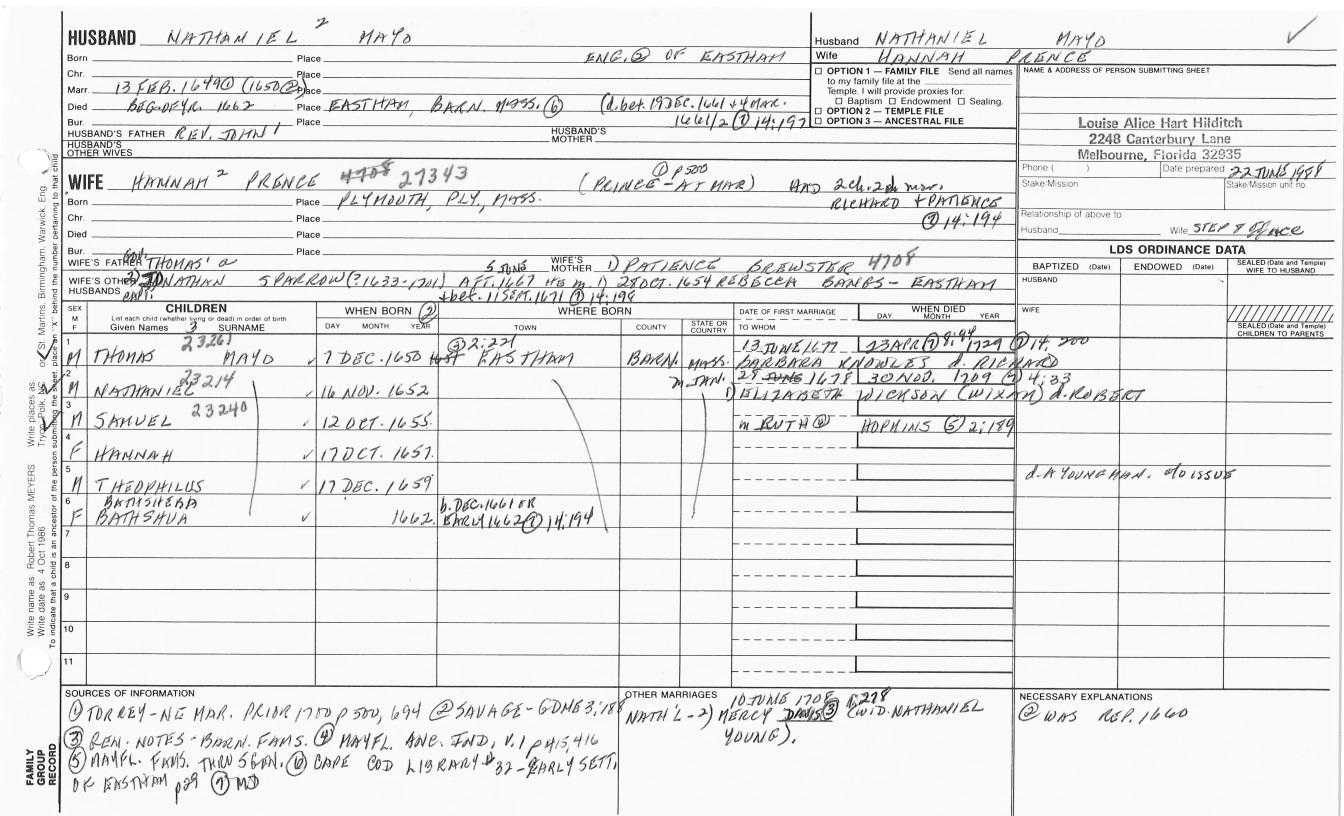 HUSBAND NATHANIEL 2 MAYO
Husband NATHANIEL MAYO
Born Place ENG. ② OF EASTHAM
Wife HANNAH PRENCE
Chr. Place
Marr. 13 FEB. 1649① (1650②) Place
Died BEG. OF YR. 1662 Place EASTHAM, BARN. MASS. ⑥ (d. bet. 19 DEC. 1661 + 4 MAR.
Bur. Place 1661/2 ⑦ 14:197
HUSBAND'S FATHER REV. JOHN 1
HUSBAND'S MOTHER
HUSBAND'S OTHER WIVES
☐ OPTION 1 — FAMILY FILE Send all names
to my family file at the
Temple. I will provide proxies for
☐ Baptism ☐ Endowment ☐ Sealing.
☐ OPTION 2 — TEMPLE FILE
☐ OPTION 3 — ANCESTRAL FILE
NAME & ADDRESS OF PERSON SUBMITTING SHEET
Louise Alice Hart Hilditch
2248 Canterbury Lane
Melbourne, Florida 32935
Phone ( ) Date prepared 22 JUNE 1988
Stake/Mission Stake/Mission unit no.
Relationship of above to
Husband Wife STEP 8
WIFE HANNAH 2 PRENCE 4708 27343 ① p 500
(PRINCE - AT MAR) HAD 2ch. 2d mar.
Born Place PLYMOUTH, PLY., MASS. RICHARD + PATIENCE
Chr. Place ⑦ 14:194
Died Place
Bur. Place
WIFE'S FATHER GOV. THOMAS 1 a
WIFE'S MOTHER 1) PATIENCE BREWSTER 4708
WIFE'S OTHER HUSBANDS 2) CAPT. JONATHAN SPARROW (?1633-1701) 5 JUNE AFT. 1667 HE m. 1) 28 OCT. 1654 REBECCA BANGS - EASTHAM
+ bet. 11 SEPT. 1671 ⑦ 14:198
LDS ORDINANCE DATA
BAPTIZED (Date) ENDOWED (Date) SEALED (Date and Temple) WIFE TO HUSBAND
HUSBAND
WIFE
SEALED (Date and Temple) CHILDREN TO PARENTS
SEX M F
CHILDREN
List each child (whether living or dead) in order of birth
Given Names 3 SURNAME
WHEN BORN ②
DAY MONTH YEAR
WHERE BORN
TOWN COUNTY STATE OR COUNTRY
DATE OF FIRST MARRIAGE
TO WHOM
WHEN DIED
DAY MONTH YEAR
1 M THOMAS 23261 MAYO ✓ 7 DEC. 1650 ③ 2:221 EASTHAM BARN. MASS. 13 JUNE 1677 23 APR ⑦ 8:94 1729 ⑦ 14:200
BARBARA KNOWLES d. RICHARD
2 M NATHANIEL 23214 ✓ 16 NOV. 1652 m. JAN. 28 JUNE 1678 30 NOV. 1709 ⑦ 4:33
1) ELIZABETH WICKSON (WIXAM) d. ROBERT
3 M SAMUEL 23240 ✓ 12 OCT. 1655 m RUTH ④ HOPKINS ⑤ 2:189
4 F HANNAH ✓ 17 OCT. 1657
5 M THEOPHILUS ✓ 17 DEC. 1659 d. A YOUNG MAN. s/o ISSUE
6 F BATHSHEBA
BATHSHUA ✓ 1662 b. DEC. 1661 OR
EARLY 1662 ⑦ 14:194
7
8
9
10
11
SOURCES OF INFORMATION
① TORREY - NE MAR. PRIOR 1700 p 500, 694 ② SAVAGE - GDNE 3:188
③ REN. NOTES - BARN. FAMS. ④ MAYFL. ANC. IND, V.1 p 415, 416
⑤ MAYFL. FAMS. THRU 5 GEN. ⑥ CAPE COD LIBRARY # 32 - EARLY SETT.
OF EASTHAM p29 ⑦ MD
OTHER MARRIAGES
10 JUNE 1708 8:228
NATH'L - 2) MERCY DAVIS ③ (WID. NATHANIEL
YOUNG).
NECESSARY EXPLANATIONS
② WAS REP. 1660
FAMILY GROUP RECORD
Write name as Robert Thomas MEYERS
Write date as 4 Oct 1986
Write places as
Tryon, Polk, NC or St. Martins, Birmingham, Warwick, Eng.
To indicate that a child is an ancestor of the person submitting the sheet, place an "X" behind the number pertaining to that child